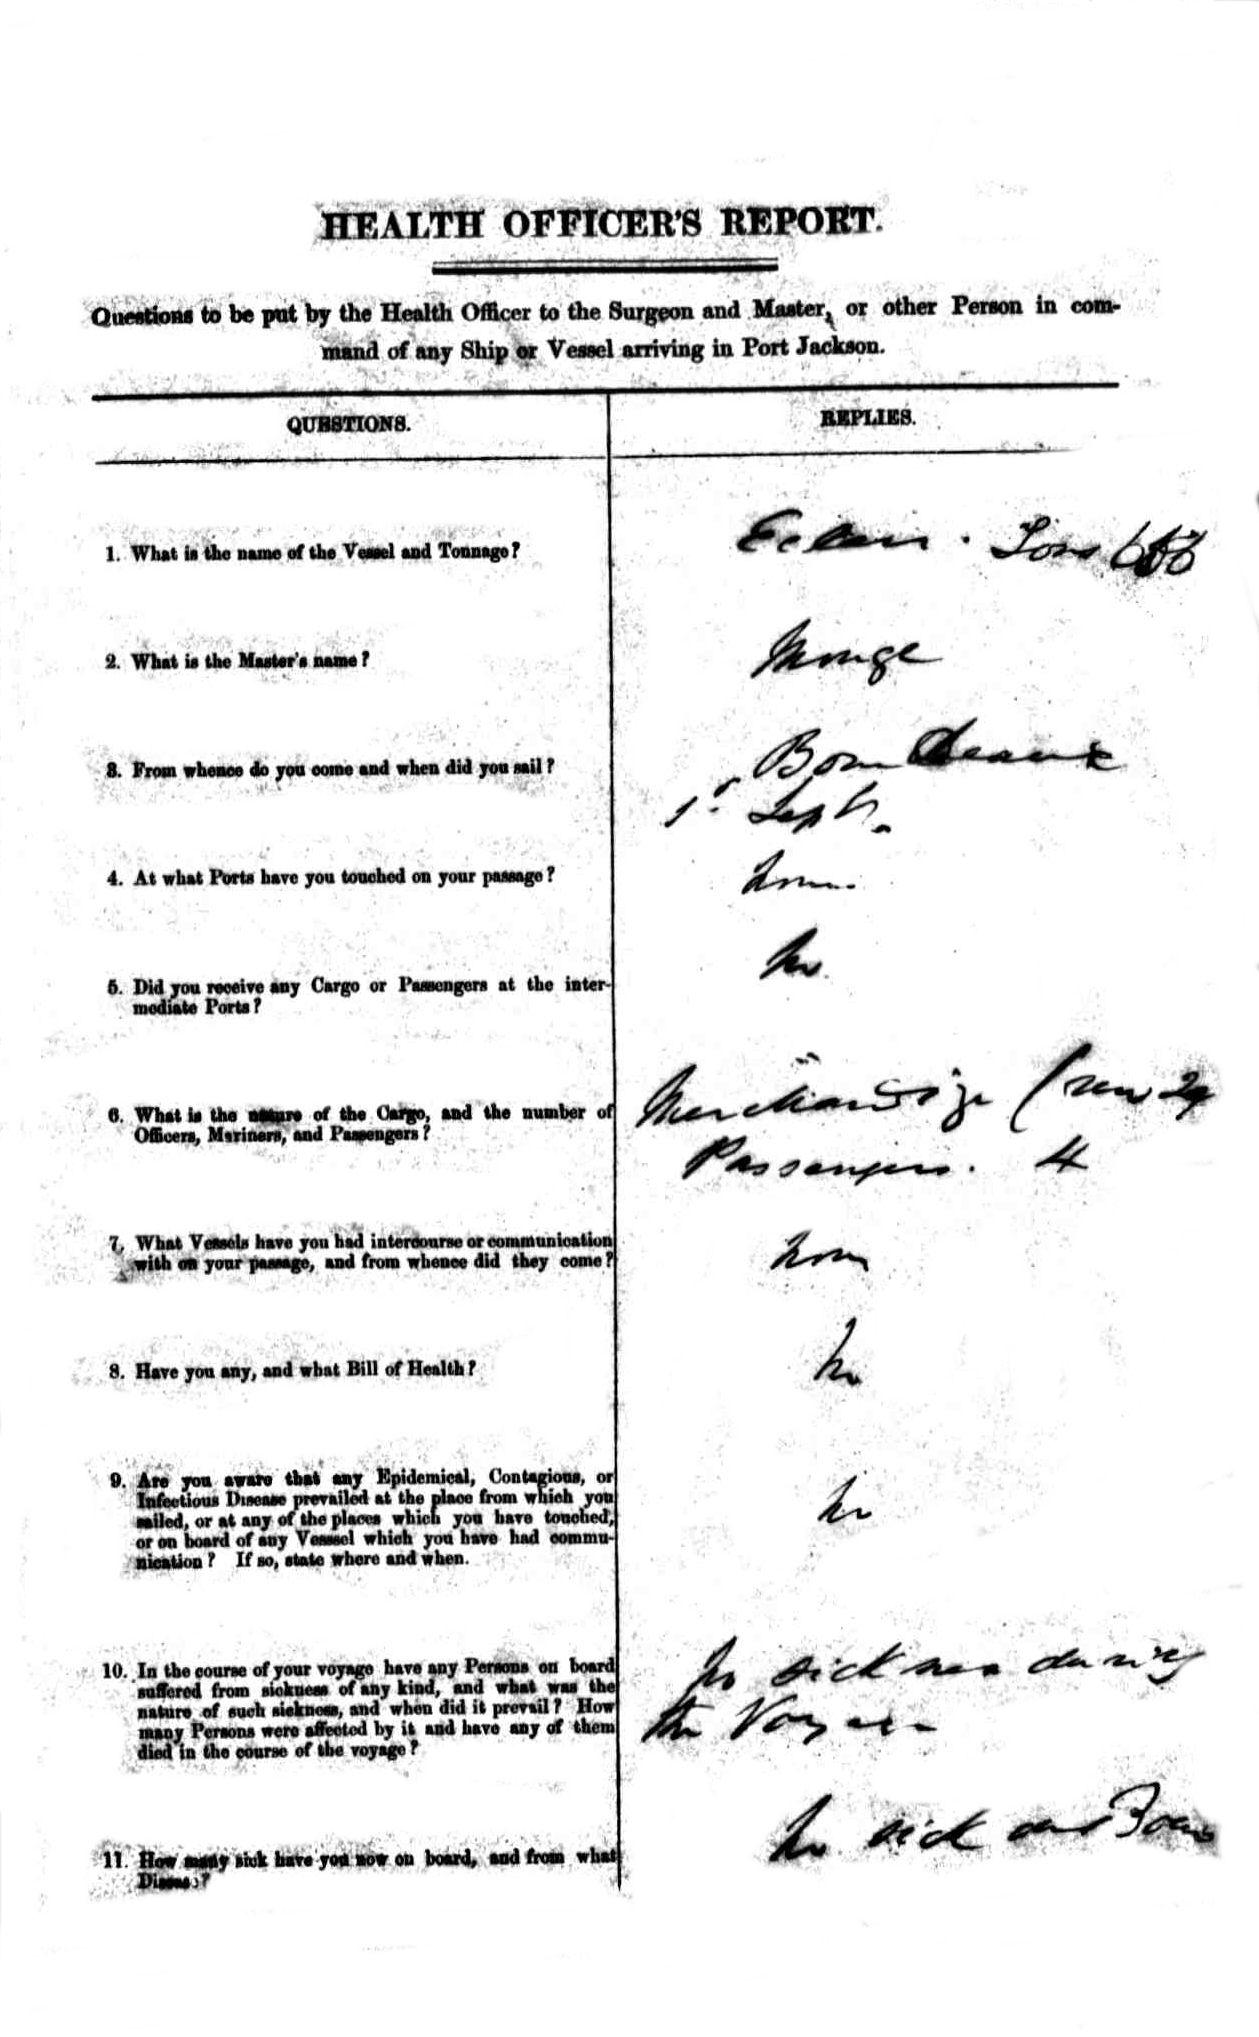 HEALTH OFFICER'S REPORT.
Questions to be put by the Health Officer to the Surgeon and Master, or other Person in com-
mand of any Ship or Vessel arriving in Port Jackson.
QUESTIONS.
REPLIES.
1. What is the name of the Vessel and Tonnage?
Tons
2. What is the Master's name?
Monge
3. From whence do you come and when did you sail?
Bourdeaux
1st Sept.
4. At what Ports have you touched on your passage?
None
5. Did you receive any Cargo or Passengers at the inter-
mediate Ports?
No
6. What is the nature of the Cargo, and the number of
Officers, Mariners, and Passengers?
Merchandize
Passengers. 4
7. What Vessels have you had intercourse or communication
with on your passage, and from whence did they come?
None
8. Have you any, and what Bill of Health?
No
9. Are you aware that any Epidemical, Contagious, or
Infectious Disease prevailed at the place from which you
sailed, or at any of the places which you have touched,
or on board of any Vesssel which you have had commu-
nication? If so, state where and when.
No
10. In the course of your voyage have any Persons on board
suffered from sickness of any kind, and what was the
nature of such sickness, and when did it prevail? How
many Persons were affected by it and have any of them
died in the course of the voyage?
No sickness during
the Voyage
11. How many sick have you now on board, and from what
Disease?
No sick on Board